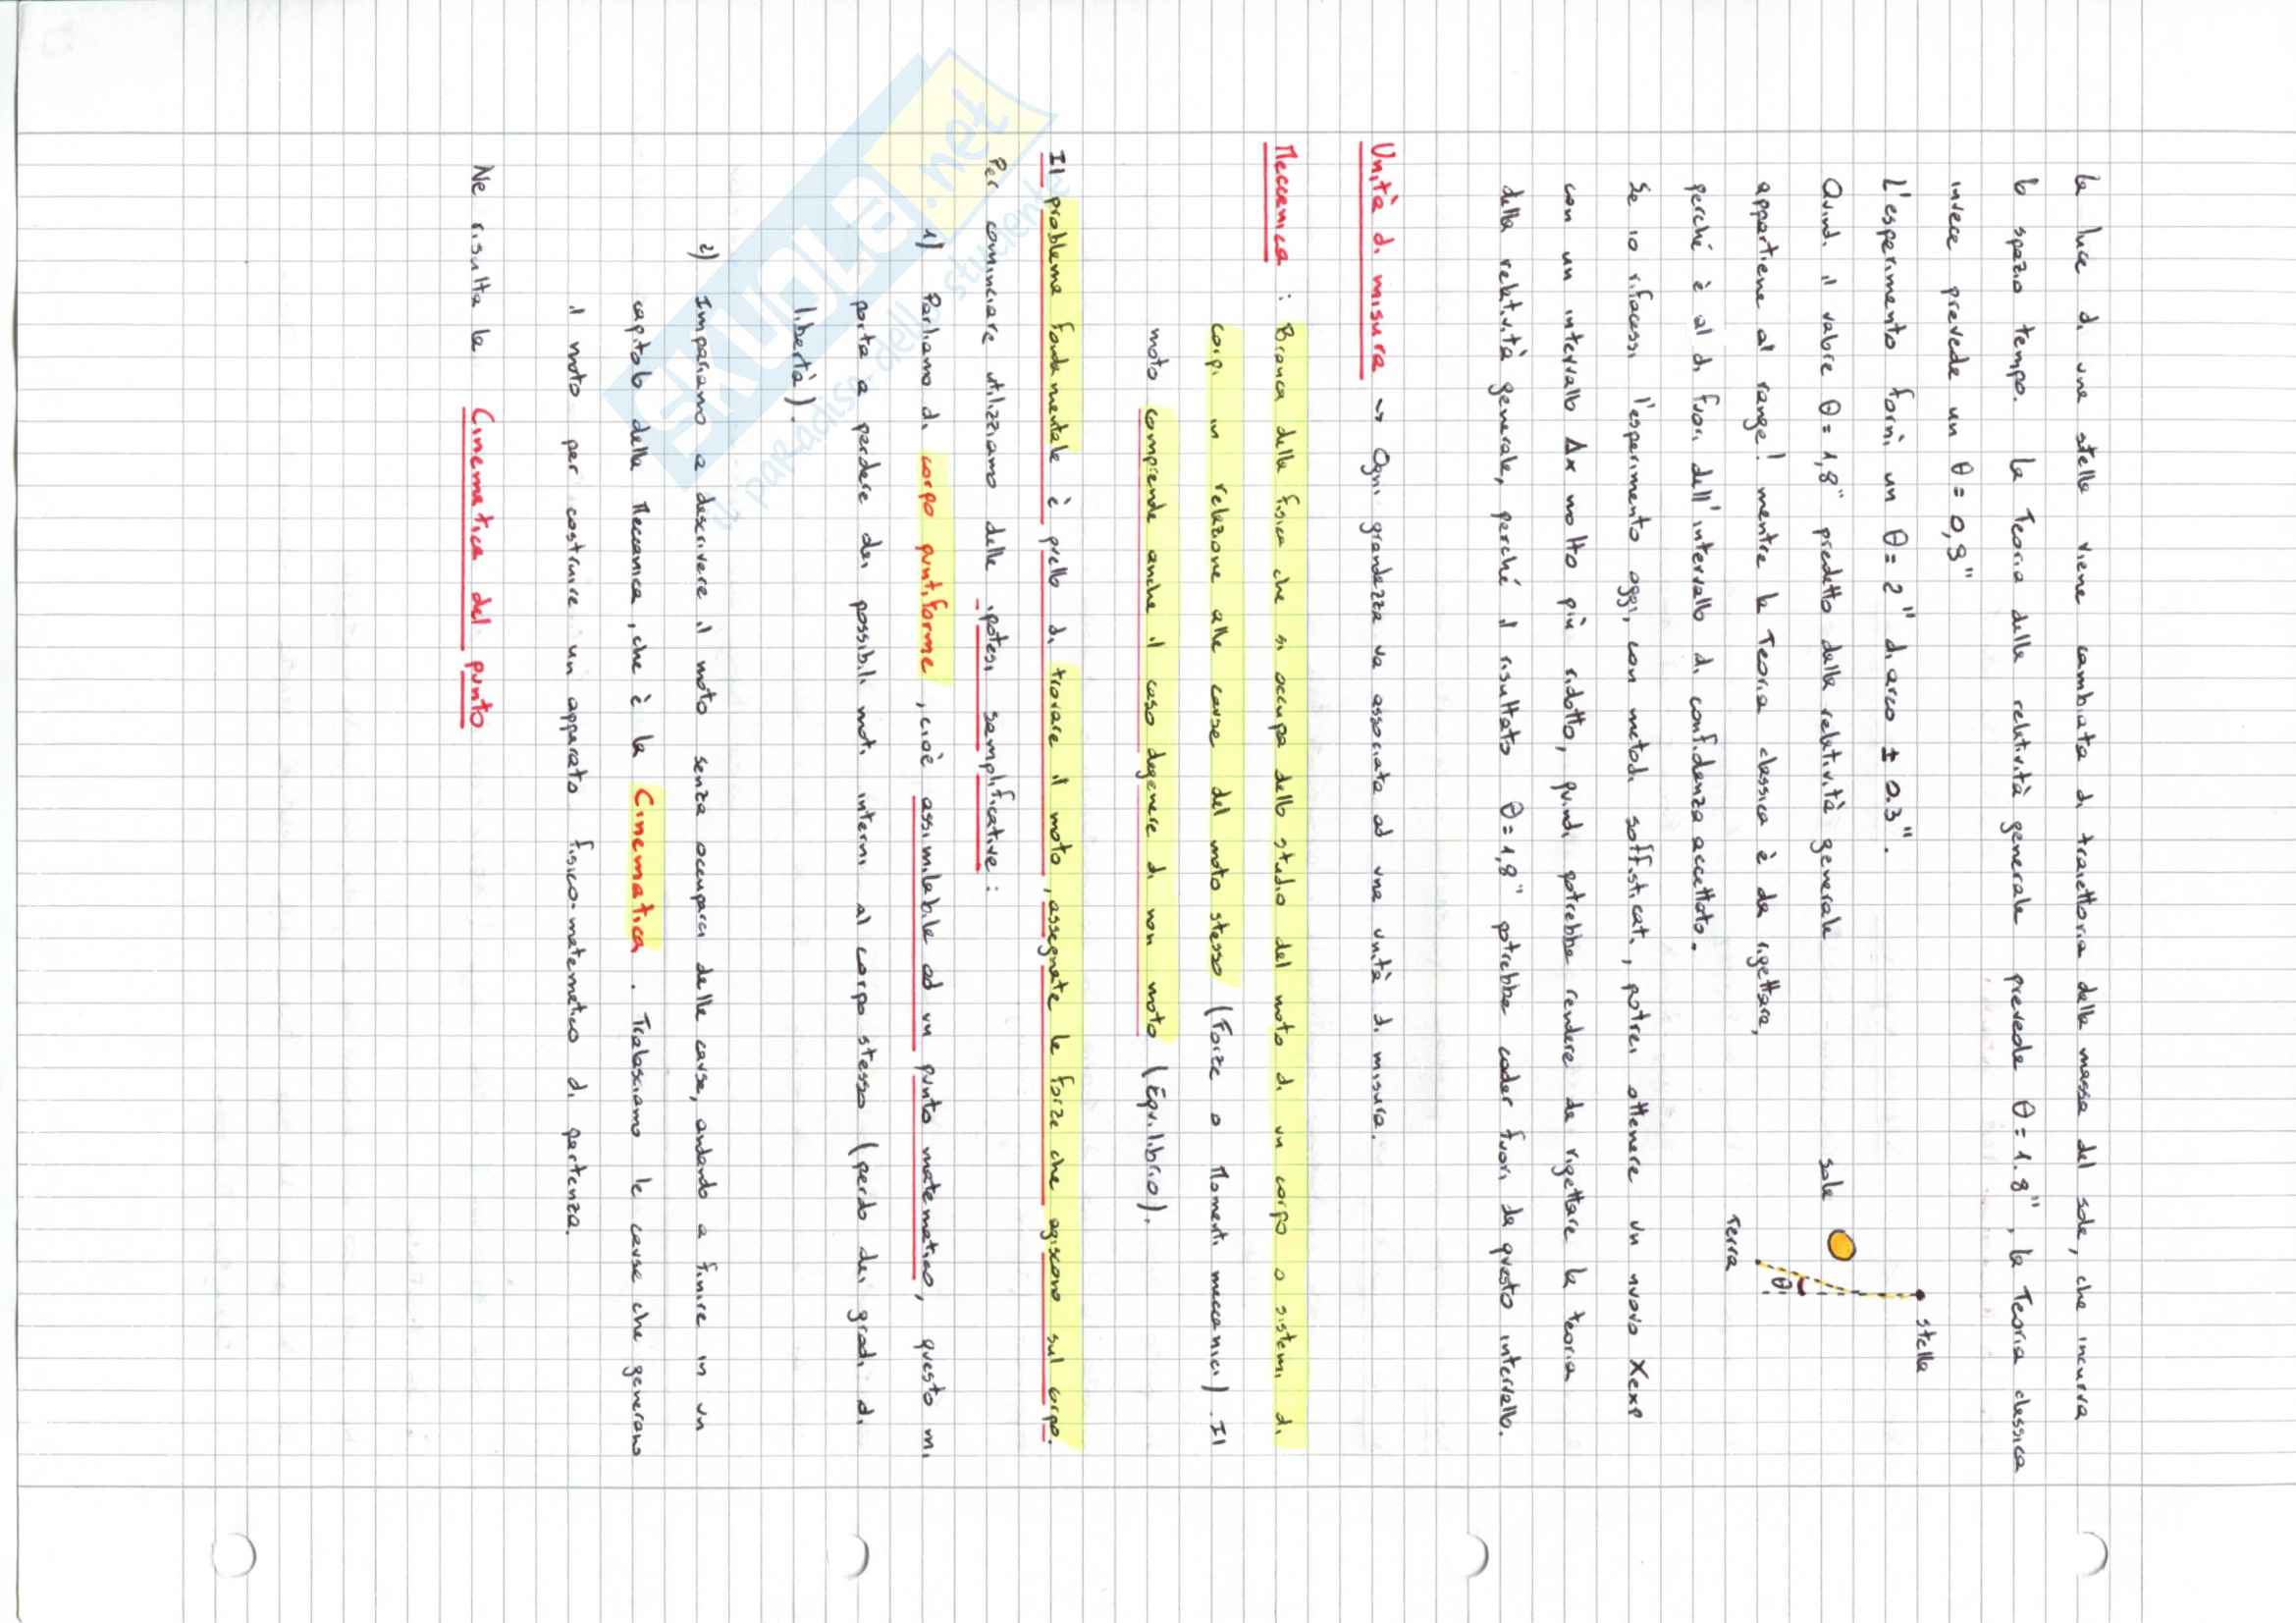 la luce di una stella viene cambiata di traiettoria dalla massa del sole, che incurva
lo spazio tempo. La Teoria della relatività generale prevede θ = 1.8", la Teoria classica
invece prevede un θ = 0,9"
L'esperimento fornì un θ = 2" di arco ± 0.3".
Quindi il valore θ = 1,8" predetto dalla relatività generale
appartiene al range! mentre la Teoria classica è da rigettare,
perché è al di fuori dell'intervallo di confidenza accettato.
stella
sole
θ
Terra
Se io rifacessi l'esperimento oggi, con metodi soffisticati, potrei ottenere un nuovo Xexp
con un intervallo Δx molto più ridotto, quindi potrebbe rendere da rigettare la teoria
della relatività generale, perché il risultato θ = 1,8" potrebbe cader fuori da questo intervallo.
Unità di misura ⤳ Ogni grandezza va associata ad una unità di misura.
Meccanica : Branca della fisica che si occupa dello studio del moto di un corpo o sistemi di
corpi in relazione alle cause del moto stesso (Forze o Momenti meccanici). Il
moto comprende anche il caso degenere di non moto (Equilibrio).
Il problema fondamentale è quello di trovare il moto, assegnate le forze che agiscono sul corpo.
Per cominciare utilizziamo delle ipotesi semplificative :
1) Parliamo di corpo puntiforme, cioè assimilabile ad un punto matematico, questo mi
porta a perdere dei possibili moti interni al corpo stesso (perdo dei gradi di
libertà).
2) Impariamo a descrivere il moto senza occuparci delle cause, andando a finire in un
capitolo della Meccanica, che è la Cinematica . Tralasciamo le cause che generano
il moto per costruire un apparato fisico-matematico di partenza.
Ne risulta la Cinematica del punto
SKUOLA.net
il paradiso dello studente